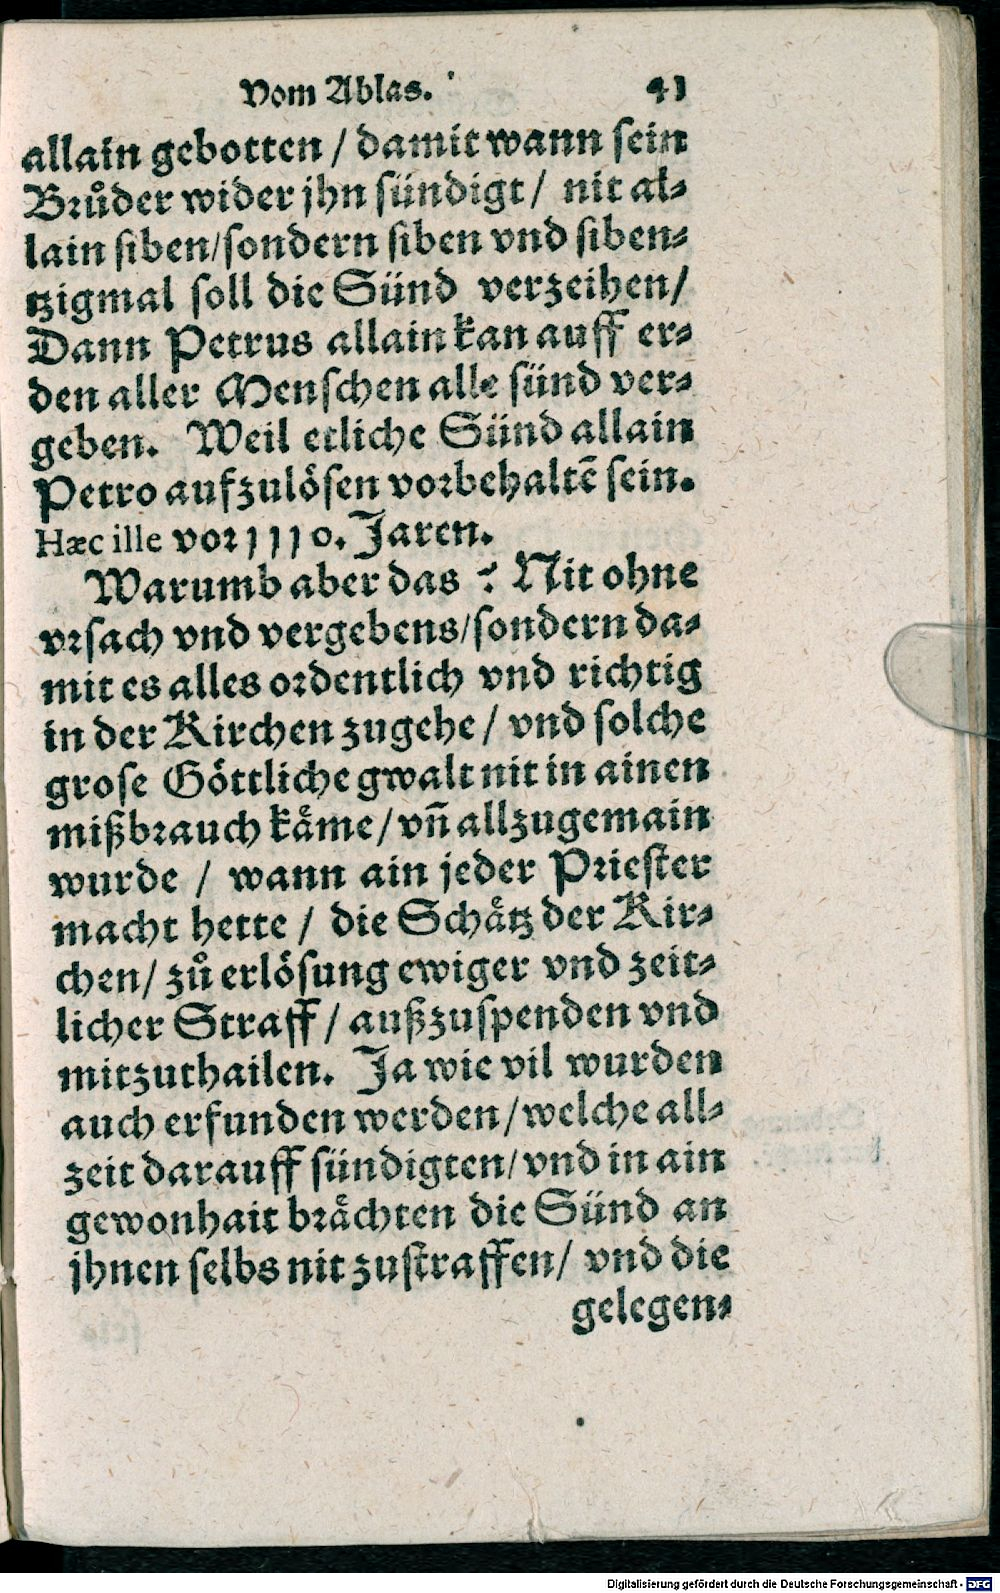 Vom Ablas. 41
allain gebotten / damit wann sein
Bruͦder wider jhn sündigt / nit al-
lain siben/sondern siben vnd siben-
tzigmal soll die Sünd verzeihen/
Dann Petrus allain kan auff er-
den aller Menschen alle sünd ver-
geben. Weil etliche Sünd allain
Petro aufzulösen vorbehaltē sein.
Hæc ille vor 1110. Jaren.
Warumb aber das ? Nit ohne
vrsach vnd vergebens/sondern da-
mit es alles ordentlich vnd richtig
in der Kirchen zugehe / vnd solche
grose Göttliche gwalt nit in ainen
mißbrauch kaͤme/vñ allzugemain
wurde / wann ain jeder Priester
macht hette / die Schaͤtz der Kir-
chen/ zuͦ erlösung ewiger vnd zeit-
licher Straff / außzuspenden vnd
mitzuthailen. Ja wie vil wurden
auch erfunden werden/welche all-
zeit darauff sündigten/vnd in ain
gewonhait braͤchten die Sünd an
jhnen selbs nit zustraffen/ vnd die
gelegen-
Digitalisierung gefördert durch die Deutsche Forschungsgemeinschaft - DFG